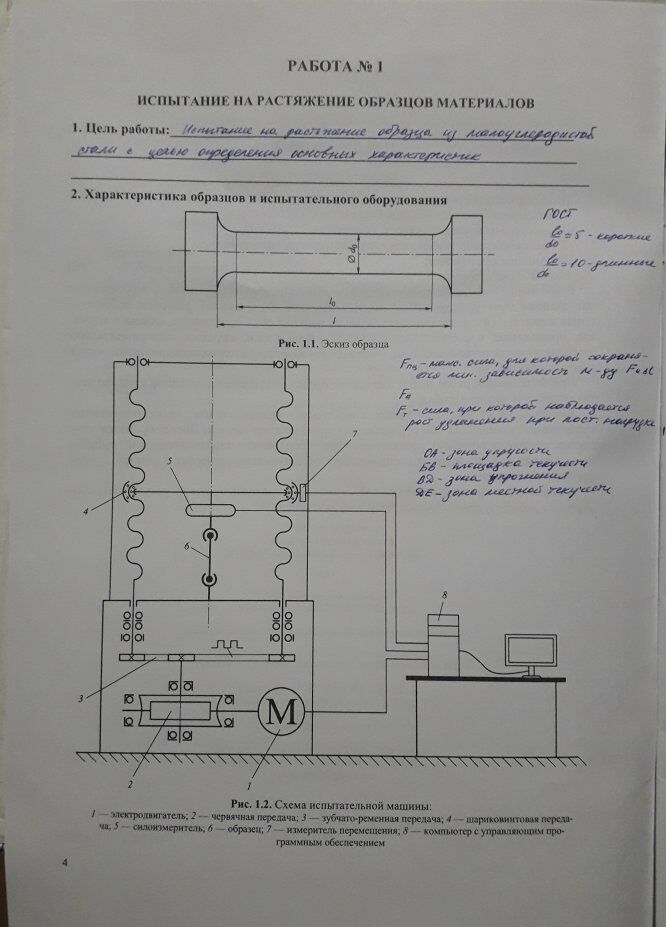 РАБОТА № 1
ИСПЫТАНИЕ НА РАСТЯЖЕНИЕ ОБРАЗЦОВ МАТЕРИАЛОВ
1. Цель работы: Испытание на растяжение образца из малоуглеродистой
стали с целью определения основных характеристик
2. Характеристика образцов и испытательного оборудования
ГОСТ
l₀/d₀ = 5 - короткие
l₀/d₀ = 10 - длинные
Ø d₀
l₀
l
Рис. 1.1. Эскиз образца
Fпц - макс. сила, для которой сохраня-
ется лин. зависимость м-ду F и Δl
Fт - сила, при которой наблюдается
рост удлинения при пост. нагрузке
ОА - зона упругости
БВ - площадка текучести
ВД - зона упрочнения
ДЕ - зона местной текучести
7
5
4
6
8
3
M
2
1
Рис. 1.2. Схема испытательной машины:
1 — электродвигатель; 2 — червячная передача; 3 — зубчато-ременная передача; 4 — шариковинтовая переда-
ча; 5 — силоизмеритель; 6 — образец; 7 — измеритель перемещения; 8 — компьютер с управляющим про-
граммным обеспечением
4